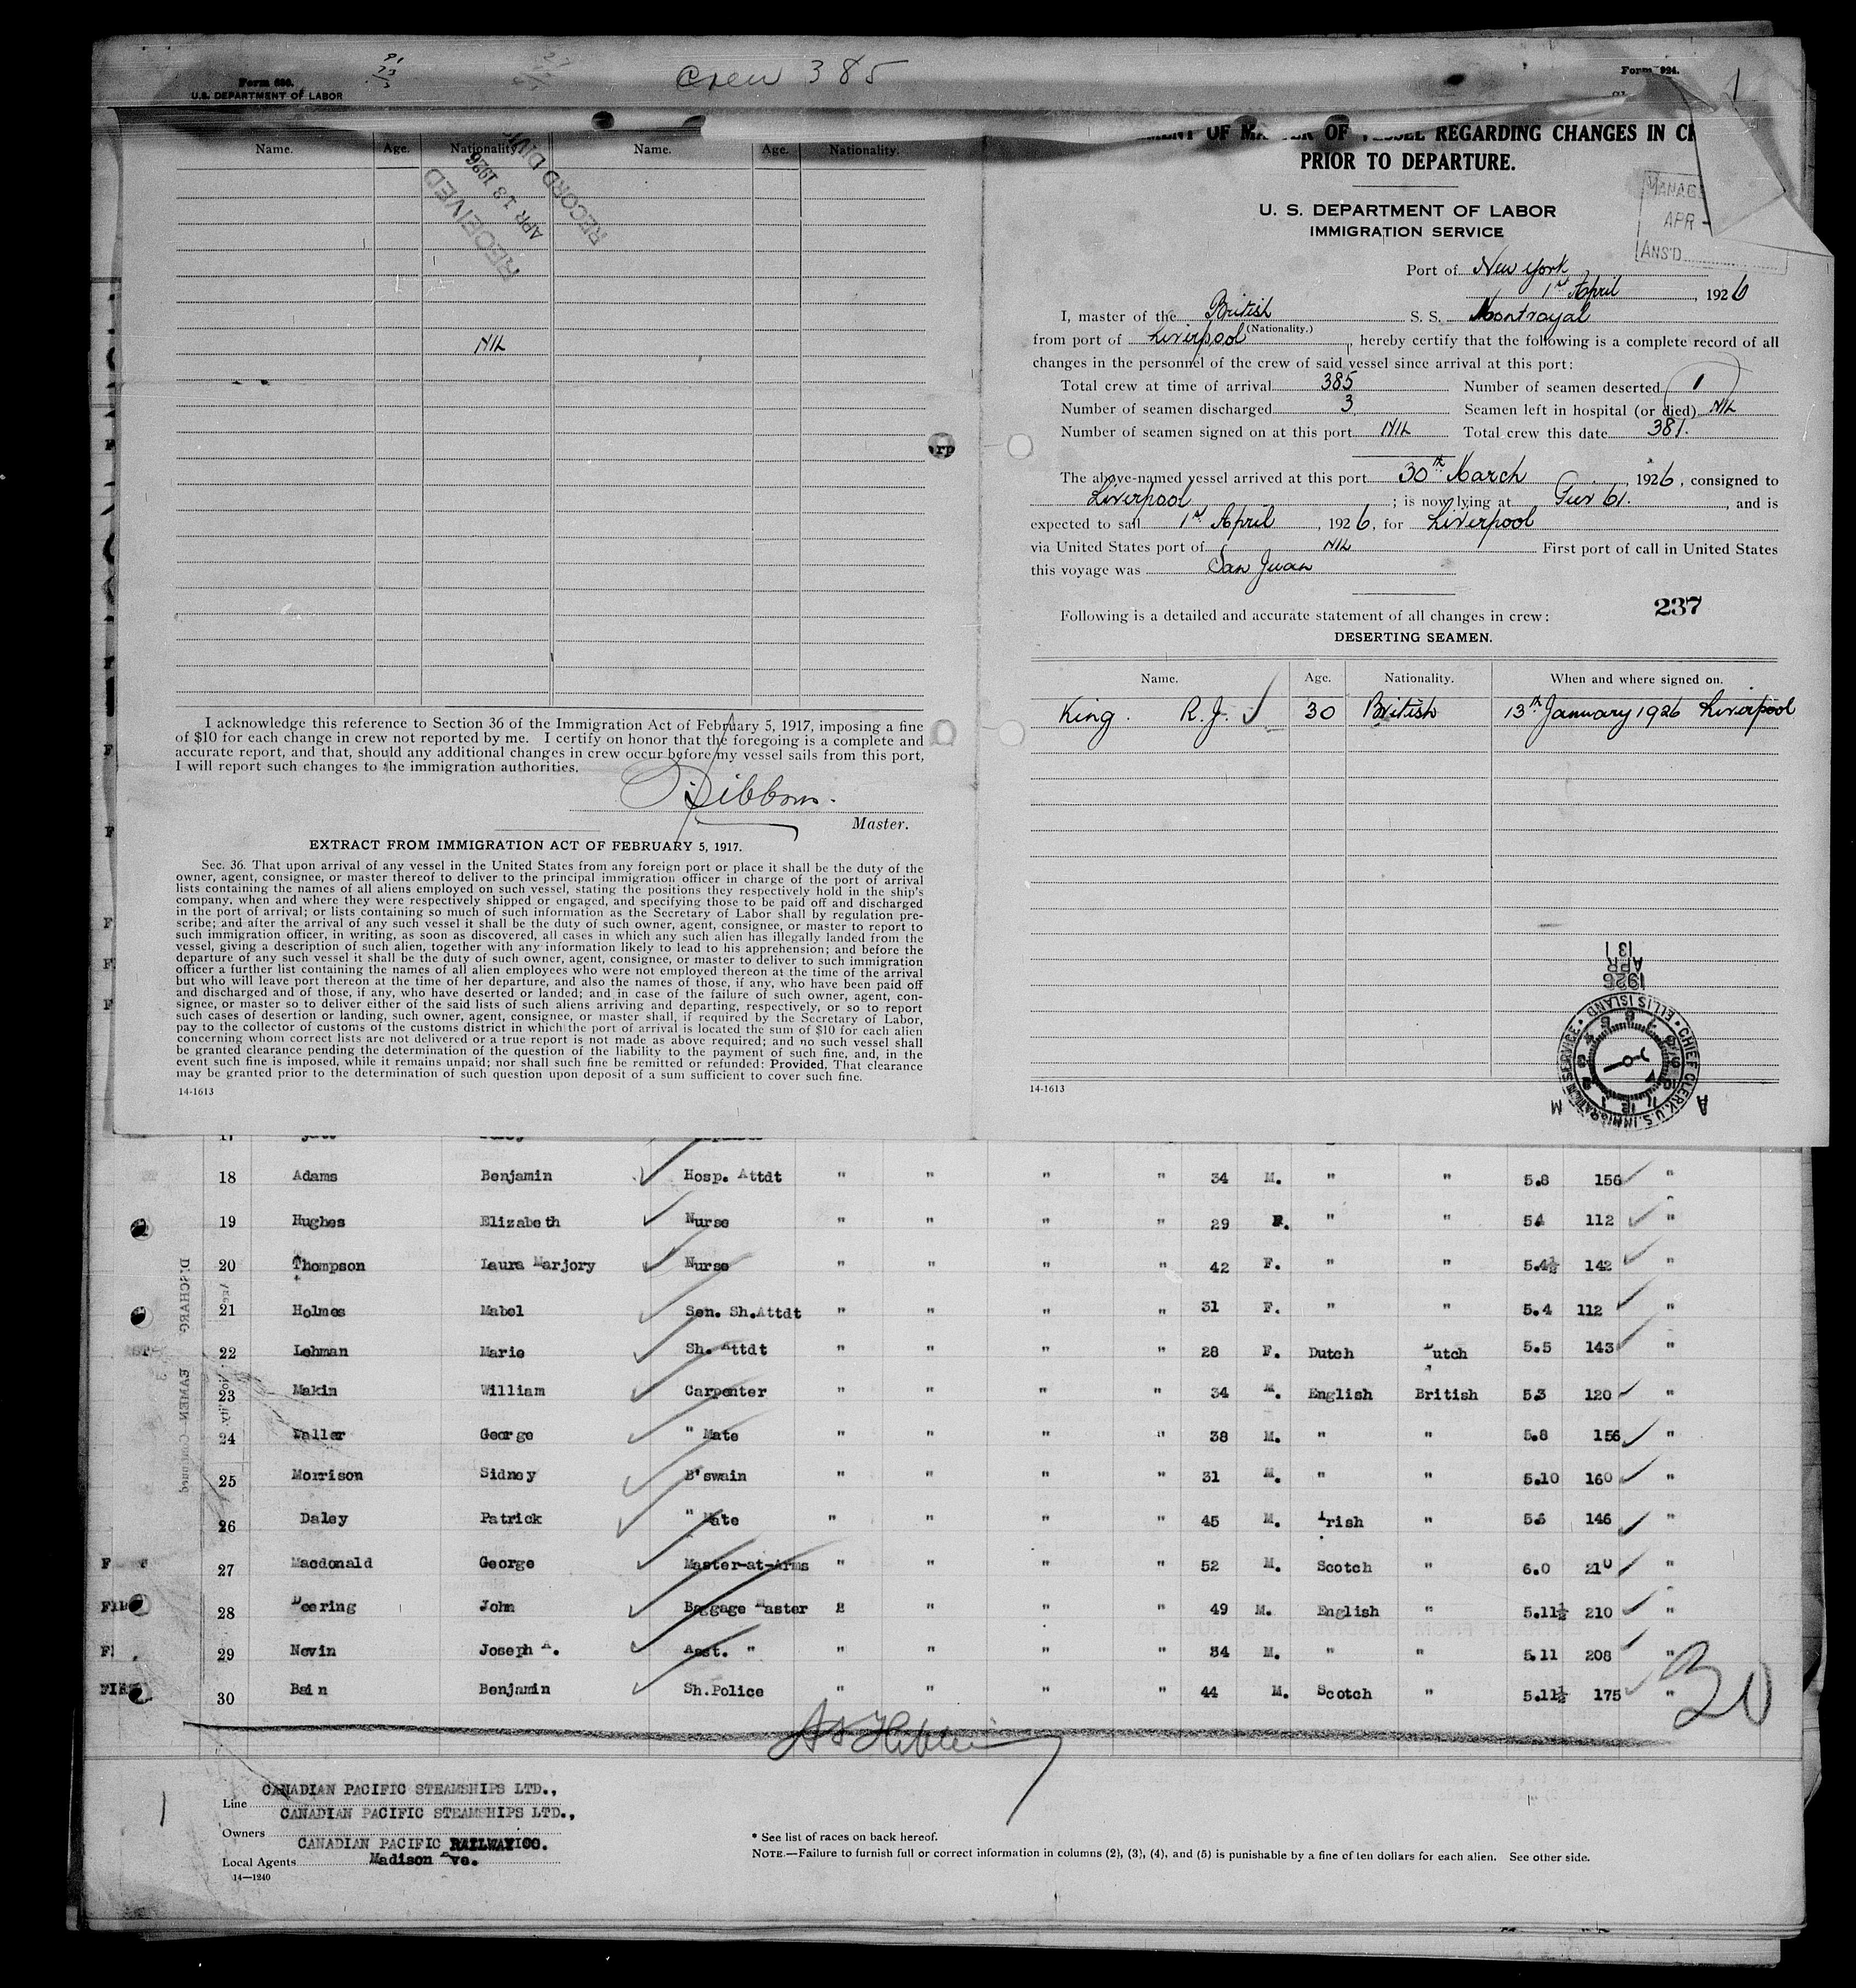 Crew 385
Form 680.
U.S. DEPARTMENT OF LABOR
Form 924.
Name. Age. Nationality. Name. Age. Nationality.
RECEIVED
APR 13 1926
RECORD DIV
NIL
I acknowledge this reference to Section 36 of the Immigration Act of February 5, 1917, imposing a fine
of $10 for each change in crew not reported by me. I certify on honor that the foregoing is a complete and
accurate report, and that, should any additional changes in crew occur before my vessel sails from this port,
I will report such changes to the immigration authorities.
Master.
EXTRACT FROM IMMIGRATION ACT OF FEBRUARY 5, 1917.
Sec. 36. That upon arrival of any vessel in the United States from any foreign port or place it shall be the duty of the
owner, agent, consignee, or master thereof to deliver to the principal immigration officer in charge of the port of arrival
lists containing the names of all aliens employed on such vessel, stating the positions they respectively hold in the ship's
company, when and where they were respectively shipped or engaged, and specifying those to be paid off and discharged
in the port of arrival; or lists containing so much of such information as the Secretary of Labor shall by regulation pre-
scribe; and after the arrival of any such vessel it shall be the duty of such owner, agent, consignee, or master to report to
such immigration officer, in writing, as soon as discovered, all cases in which any such alien has illegally landed from the
vessel, giving a description of such alien, together with any information likely to lead to his apprehension; and before the
departure of any such vessel it shall be the duty of such owner, agent, consignee, or master to deliver to such immigration
officer a further list containing the names of all alien employees who were not employed thereon at the time of the arrival
but who will leave port thereon at the time of her departure, and also the names of those, if any, who have been paid off
and discharged and of those, if any, who have deserted or landed; and in case of the failure of such owner, agent, con-
signee, or master so to deliver either of the said lists of such aliens arriving and departing, respectively, or so to report
such cases of desertion or landing, such owner, agent, consignee, or master shall, if required by the Secretary of Labor,
pay to the collector of customs of the customs district in which the port of arrival is located the sum of $10 for each alien
concerning whom correct lists are not delivered or a true report is not made as above required; and no such vessel shall
be granted clearance pending the determination of the question of the liability to the payment of such fine, and, in the
event such fine is imposed, while it remains unpaid; nor shall such fine be remitted or refunded: Provided, That clearance
may be granted prior to the determination of such question upon deposit of a sum sufficient to cover such fine.
14-1613
OF VESSEL REGARDING CHANGES IN
PRIOR TO DEPARTURE.
U. S. DEPARTMENT OF LABOR
IMMIGRATION SERVICE
MANAG
APR
ANS'D
Port of New York
1st April, 1926
I, master of the British S. S. Montroyal
(Nationality.)
from port of Liverpool, hereby certify that the following is a complete record of all
changes in the personnel of the crew of said vessel since arrival at this port:
Total crew at time of arrival 385 Number of seamen deserted 1
Number of seamen discharged 3 Seamen left in hospital (or died) NIL
Number of seamen signed on at this port NIL Total crew this date 381.
The above-named vessel arrived at this port 30th March, 1926, consigned to
Liverpool; is now lying at Pier 61., and is
expected to sail 1st April, 1926, for Liverpool
via United States port of NIL First port of call in United States
this voyage was San Juan
237
Following is a detailed and accurate statement of all changes in crew:
DESERTING SEAMEN.
Name. Age. Nationality. When and where signed on.
King. R.J. 30 British 13th January 1926 Liverpool
1926
APR 13
CHIEF CLERK, U.S. IMMIGRATION SERVICE • ELLIS ISLAND •
A M
14-1613
17
18 Adams Benjamin Hosp. Attdt " " " " 34 M. " " 5.8 156 "
19 Hughes Elizabeth Nurse " " " " 29 F. " " 54 112 "
20 Thompson Laura Marjory Nurse " " " " 42 F. " " 5.4½ 142 "
21 Holmes Mabel Sen. Sh.Attdt " " " " 31 F. " " 5.4 112 "
22 Lehman Marie Sh. Attdt " " " " 28 F. Dutch Dutch 5.5 143 "
23 Makin William Carpenter " " " " 34 M. English British 5.3 120 "
24 Waller George " Mate " " " " 38 M. " " 5.8 156 "
25 Morrison Sidney B'swain " " " " 31 M. " " 5.10 160 "
26 Daley Patrick " Mate " " " " 45 M. Irish " 5.6 146 "
27 Macdonald George Master-at-Arms " " " " 52 M. Scotch " 6.0 210 "
28 Deering John Baggage Master " " " 49 M. English " 5.11½ 210 "
29 Nevin Joseph A. Asst. " " " " " 34 M. " " 5.11 208 "
30 Bain Benjamin Sh.Police " " " " 44 M. Scotch " 5.11½ 175 "
30
Line CANADIAN PACIFIC STEAMSHIPS LTD.,
Owners CANADIAN PACIFIC STEAMSHIPS LTD.,
Local Agents CANADIAN PACIFIC RAILWAY CO.
Madison Ave.
14—1240
* See list of races on back hereof.
NOTE.—Failure to furnish full or correct information in columns (2), (3), (4), and (5) is punishable by a fine of ten dollars for each alien. See other side.